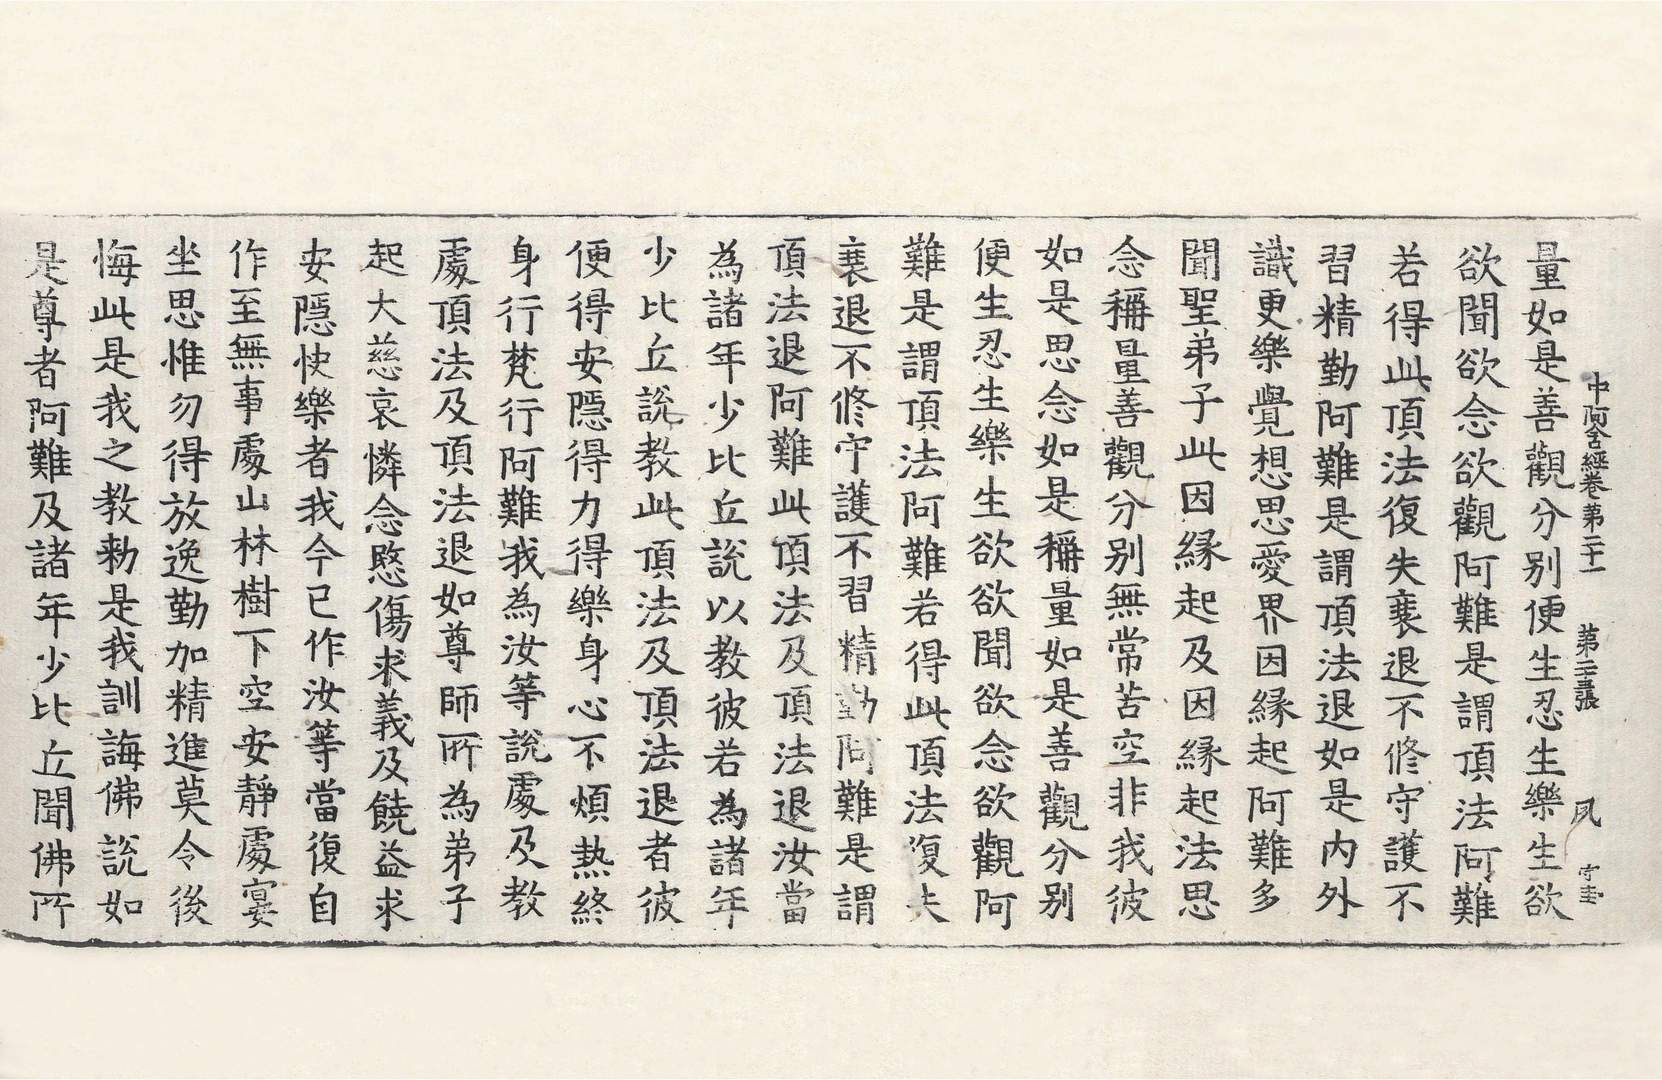 中阿含經卷第二十一 第二十三張 夙 守圭
量如是善觀分別便生忍生樂生欲
欲聞欲念欲觀阿難是謂頂法阿難
若得此頂法復失衰退不修守護不
習精勤阿難是謂頂法退如是內外
識更樂覺想思愛界因緣起阿難多
聞聖弟子此因緣起及因緣起法思
念稱量善觀分別無常苦空非我彼
如是思念如是稱量如是善觀分別
便生忍生樂生欲欲聞欲念欲觀阿
難是謂頂法阿難若得此頂法復失
衰退不修守護不習精勤阿難是謂
頂法退阿難此頂法及頂法退汝當
為諸年少比丘說以教彼若為諸年
少比丘說教此頂法及頂法退者彼
便得安隱得力得樂身心不煩熱終
身行梵行阿難我為汝等說處及教
處頂法及頂法退如尊師所為弟子
起大慈哀憐念愍傷求義及饒益求
安隱快樂者我今已作汝等當復自
作至無事處山林樹下空安靜處宴
坐思惟勿得放逸勤加精進莫令後
悔此是我之教勑是我訓誨佛說如
是尊者阿難及諸年少比丘聞佛所